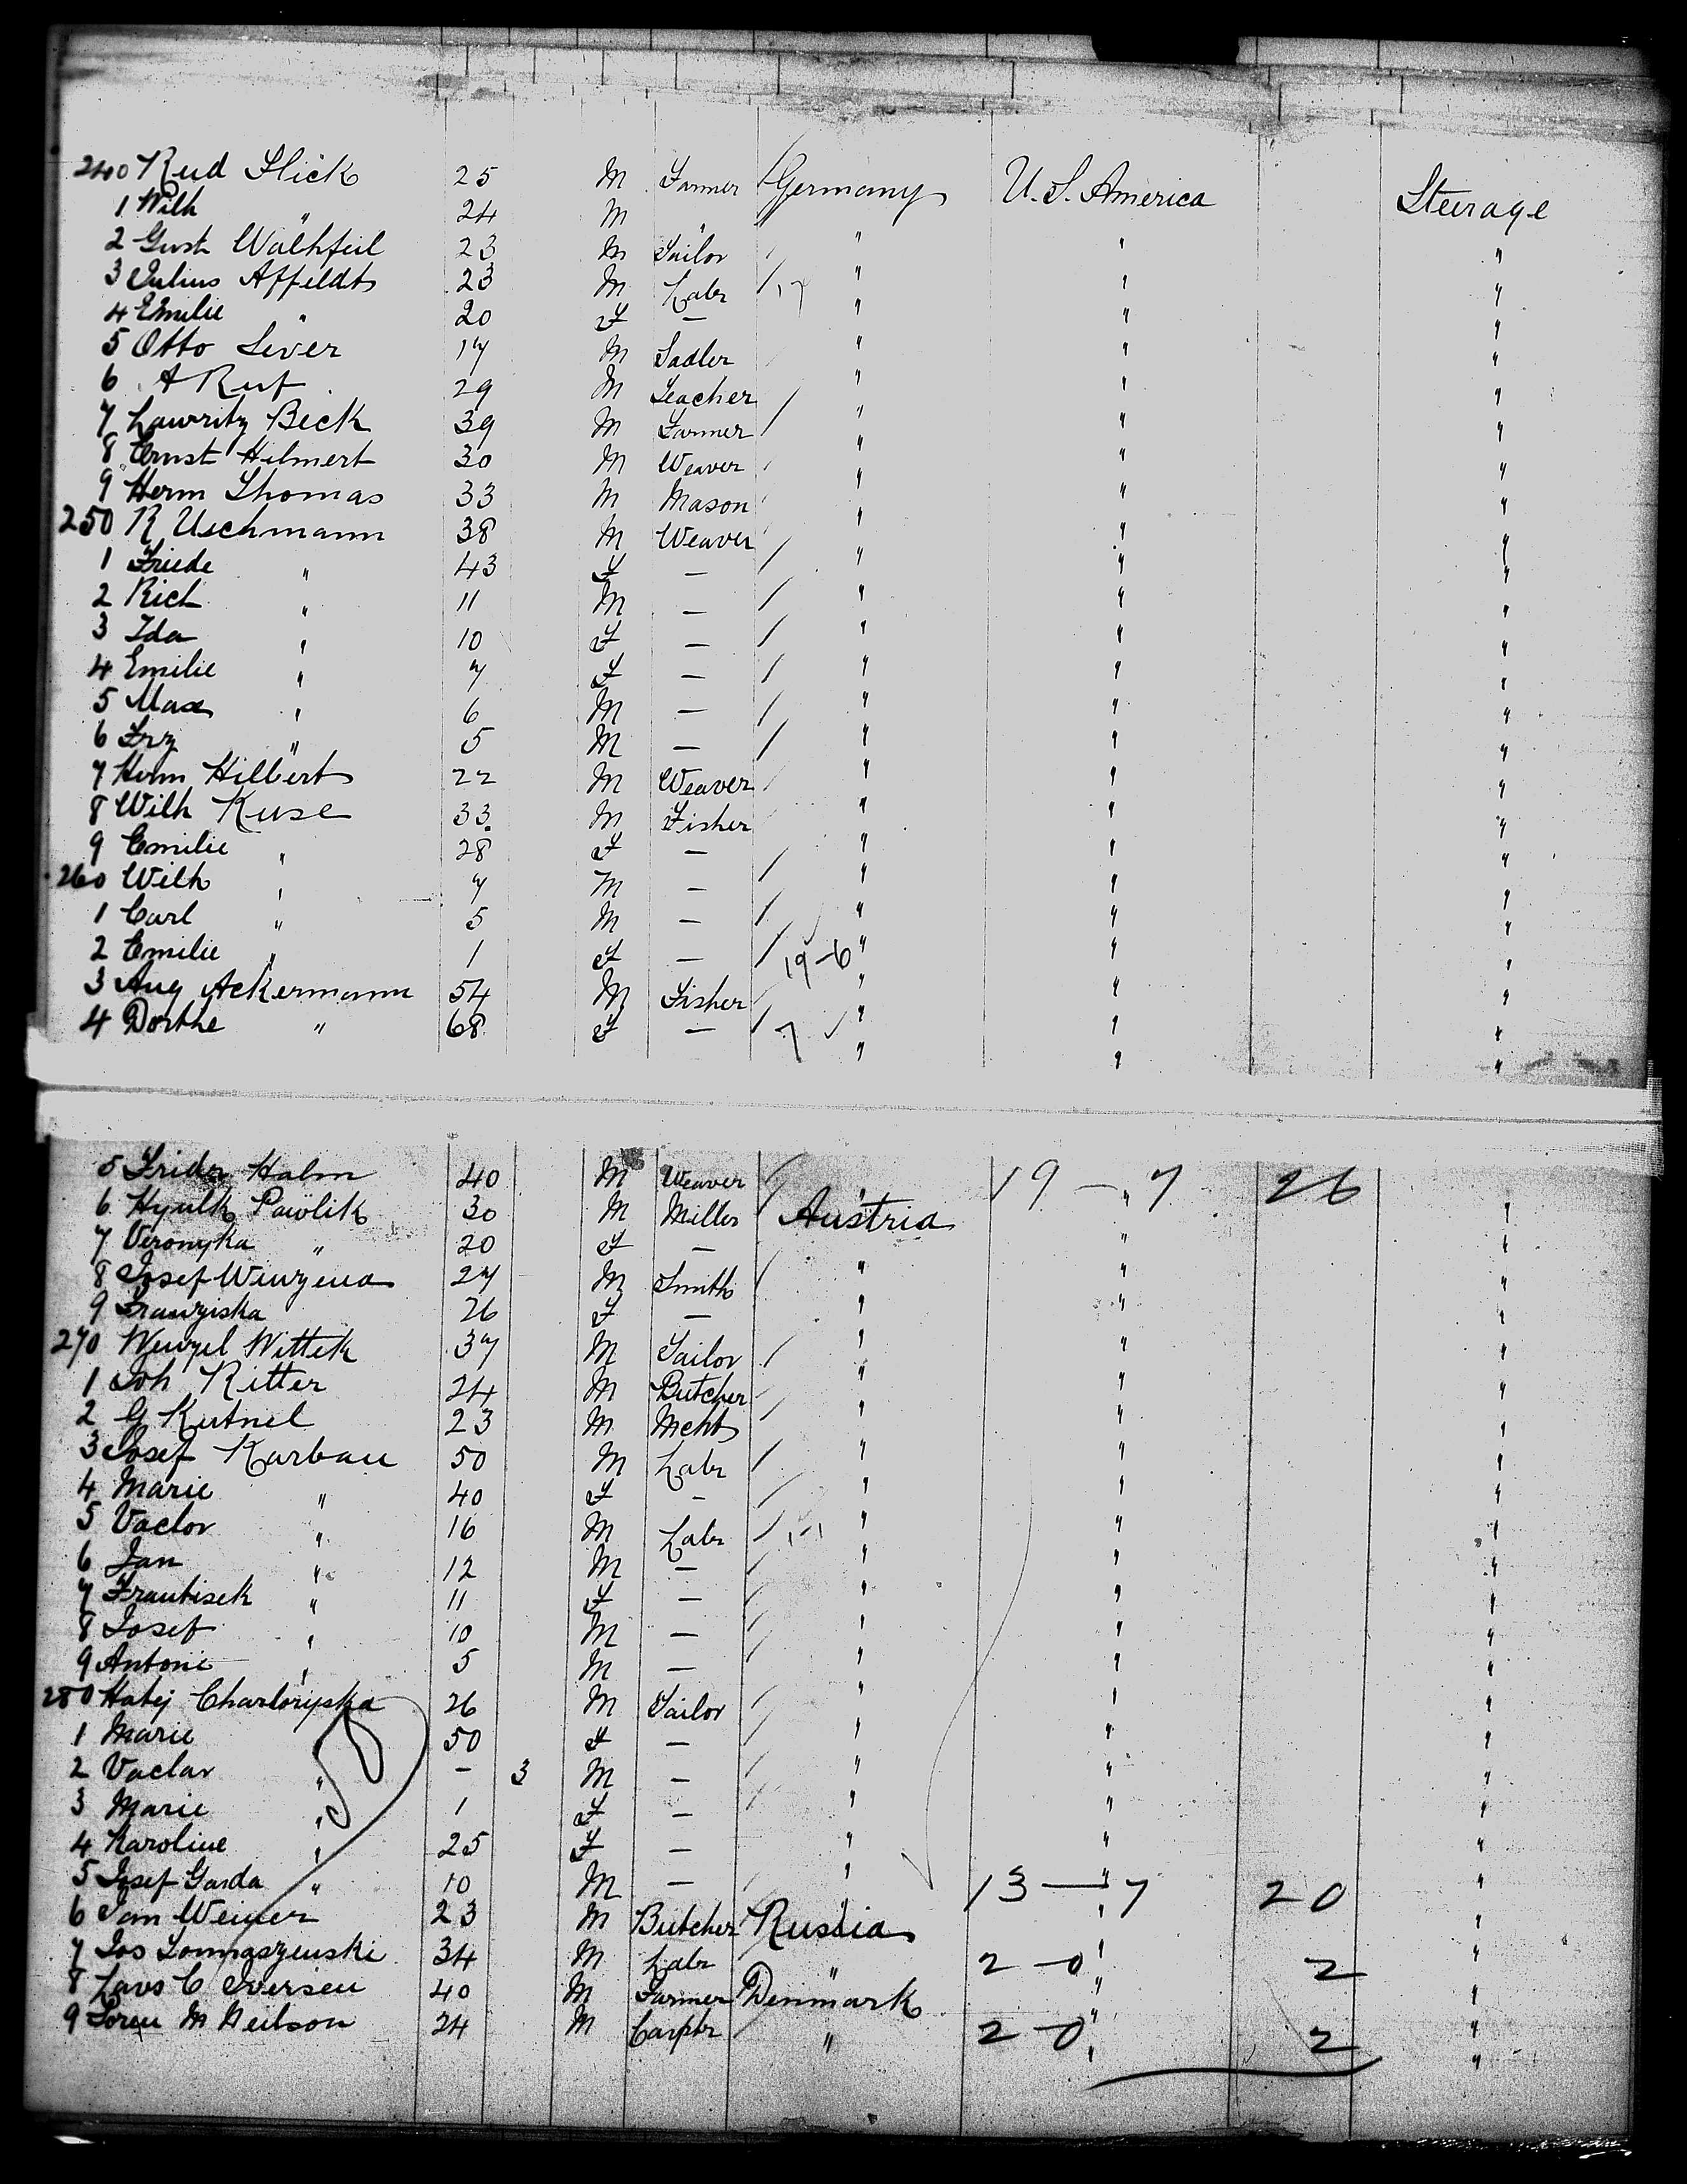 240 Rud Flick 25 M Farmer Germany U.S. America Steerage
1 Wilh " 24 M " " " "
2 Gust Wolhfeil 23 M Tailor " " "
3 Julius Affeldt 23 M Labr 17 " " "
4 Emilie " 20 F — " " "
5 Otto Siver 17 M Sadler " " "
6 A Ruf 29 M Teacher " " "
7 Lawritz Beck 39 M Farmer " " "
8 Ernst Hilmert 30 M Weaver " " "
9 Herm Thomas 33 M Mason " " "
250 R Uschmann 38 M Weaver " " "
1 Friede " 43 F — " " "
2 Rich " 11 M — " " "
3 Ida " 10 F — " " "
4 Emilie " 7 F — " " "
5 Max " 6 M — " " "
6 Frz " 5 M — " " "
7 Herm Hilbert 22 M Weaver " " "
8 Wilh Kuse 33 M Fisher " " "
9 Emilie " 28 F — " " "
260 Wilh " 7 M — " " "
1 Carl " 5 M — " " "
2 Emilie " 1 F — 19-6 " " "
3 Aug Ackermann 54 M Fisher " " "
4 Dorthe " 68 F — 7 " " "
5 Frider Halm 40 M Weaver " 19 — 7 26 "
6 Pawlik 30 M Miller Austria " "
7 Veronyka " 20 F — " " "
8 Josef 27 M Smith " " "
9 Franziska 26 F — " " "
270 Wenzel Wittek 37 M Tailor " " "
1 Joh Ritter 24 M Butcher " " "
2 G Kutnel 23 M Mcht " " "
3 Josef Karban 50 M Labr " " "
4 Marie " 40 F — " " "
5 Vaclov " 16 M Labr " " "
6 Jan " 12 M — " " "
7 Frantisek " 11 F — " " "
8 Josef " 10 M — " " "
9 Antoni " 5 M — " " "
280 Matej Charloryska 26 M Tailor " " "
1 Marie 50 F — " " "
2 Vaclav " — 3 M — " " "
3 Marie " 1 F — " " "
4 Karoline " 25 F — " " "
5 Josef Garda " 10 M — " 13 — 7 20 "
6 Jan Weiner 23 M Butcher Russia " "
7 Jos Tomaszenski 34 M Labr " 2 — 0 2 "
8 Lavs C Iversen 40 M Farmer Denmark " "
9 Soren M Neilson 24 M Carptr " 2 — 0 2 "